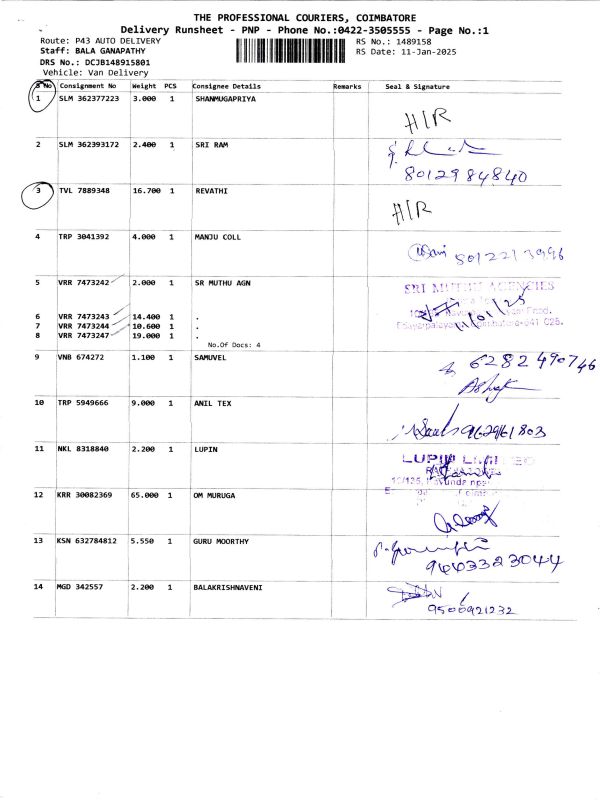 THE PROFESSIONAL COURIERS, COIMBATORE
Delivery Runsheet - PNP - Phone No.:0422-3505555 - Page No.:1
Route: P43 AUTO DELIVERY RS No.: 1489158
Staff: BALA GANAPATHY RS Date: 11-Jan-2025
DRS No.: DCJB148915801
Vehicle: Van Delivery
S No Consignment No Weight PCS Consignee Details Remarks Seal & Signature
1 SLM 362377223 3.000 1 SHANMUGAPRIYA
H/R
2 SLM 362393172 2.400 1 SRI RAM
8012984840
3 TVL 7889348 16.700 1 REVATHI
H/R
4 TRP 3041392 4.000 1 MANJU COLL
8012213996
5 VRR 7473242 2.000 1 SR MUTHU AGN
SRI MUTHU AGENCIES
6 VRR 7473243 14.400 1 .
7 VRR 7473244 10.600 1 .
8 VRR 7473247 19.000 1 .
No.Of Docs: 4
9 VNB 674272 1.100 1 SAMUVEL
6282490746
10 TRP 5949666 9.000 1 ANIL TEX
9629161803
11 NKL 8318840 2.200 1 LUPIN
LUPIN LIMITED
12 KRR 30082369 65.000 1 OM MURUGA
13 KSN 632784812 5.550 1 GURU MOORTHY
9443323044
14 MGD 342557 2.200 1 BALAKRISHNAVENI
9500921232